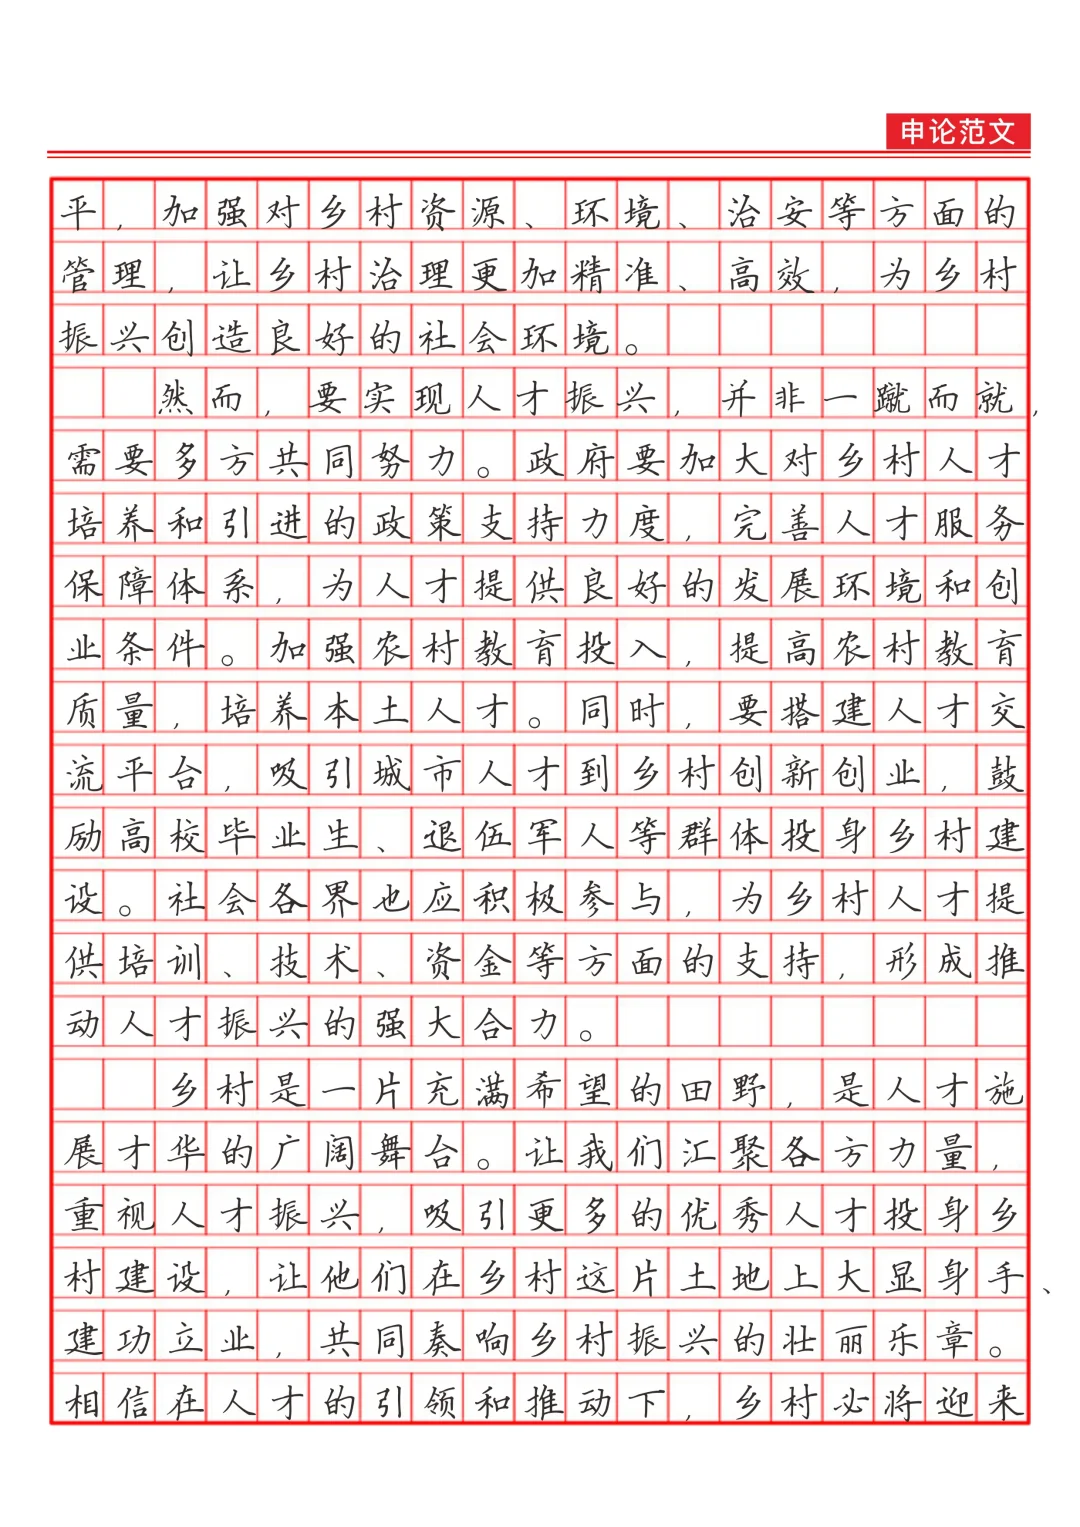 申论范文
平，加强对乡村资源、环境、治安等方面的
管理，让乡村治理更加精准、高效，为乡村
振兴创造良好的社会环境。
然而，要实现人才振兴，并非一蹴而就，
需要多方共同努力。政府要加大对乡村人才
培养和引进的政策支持力度，完善人才服务
保障体系，为人才提供良好的发展环境和创
业条件。加强农村教育投入，提高农村教育
质量，培养本土人才。同时，要搭建人才交
流平台，吸引城市人才到乡村创新创业，鼓
励高校毕业生、退伍军人等群体投身乡村建
设。社会各界也应积极参与，为乡村人才提
供培训、技术、资金等方面的支持，形成推
动人才振兴的强大合力。
乡村是一片充满希望的田野，是人才施
展才华的广阔舞台。让我们汇聚各方力量，
重视人才振兴，吸引更多的优秀人才投身乡
村建设，让他们在乡村这片土地上大显身手、
建功立业，共同奏响乡村振兴的壮丽乐章。
相信在人才的引领和推动下，乡村必将迎来